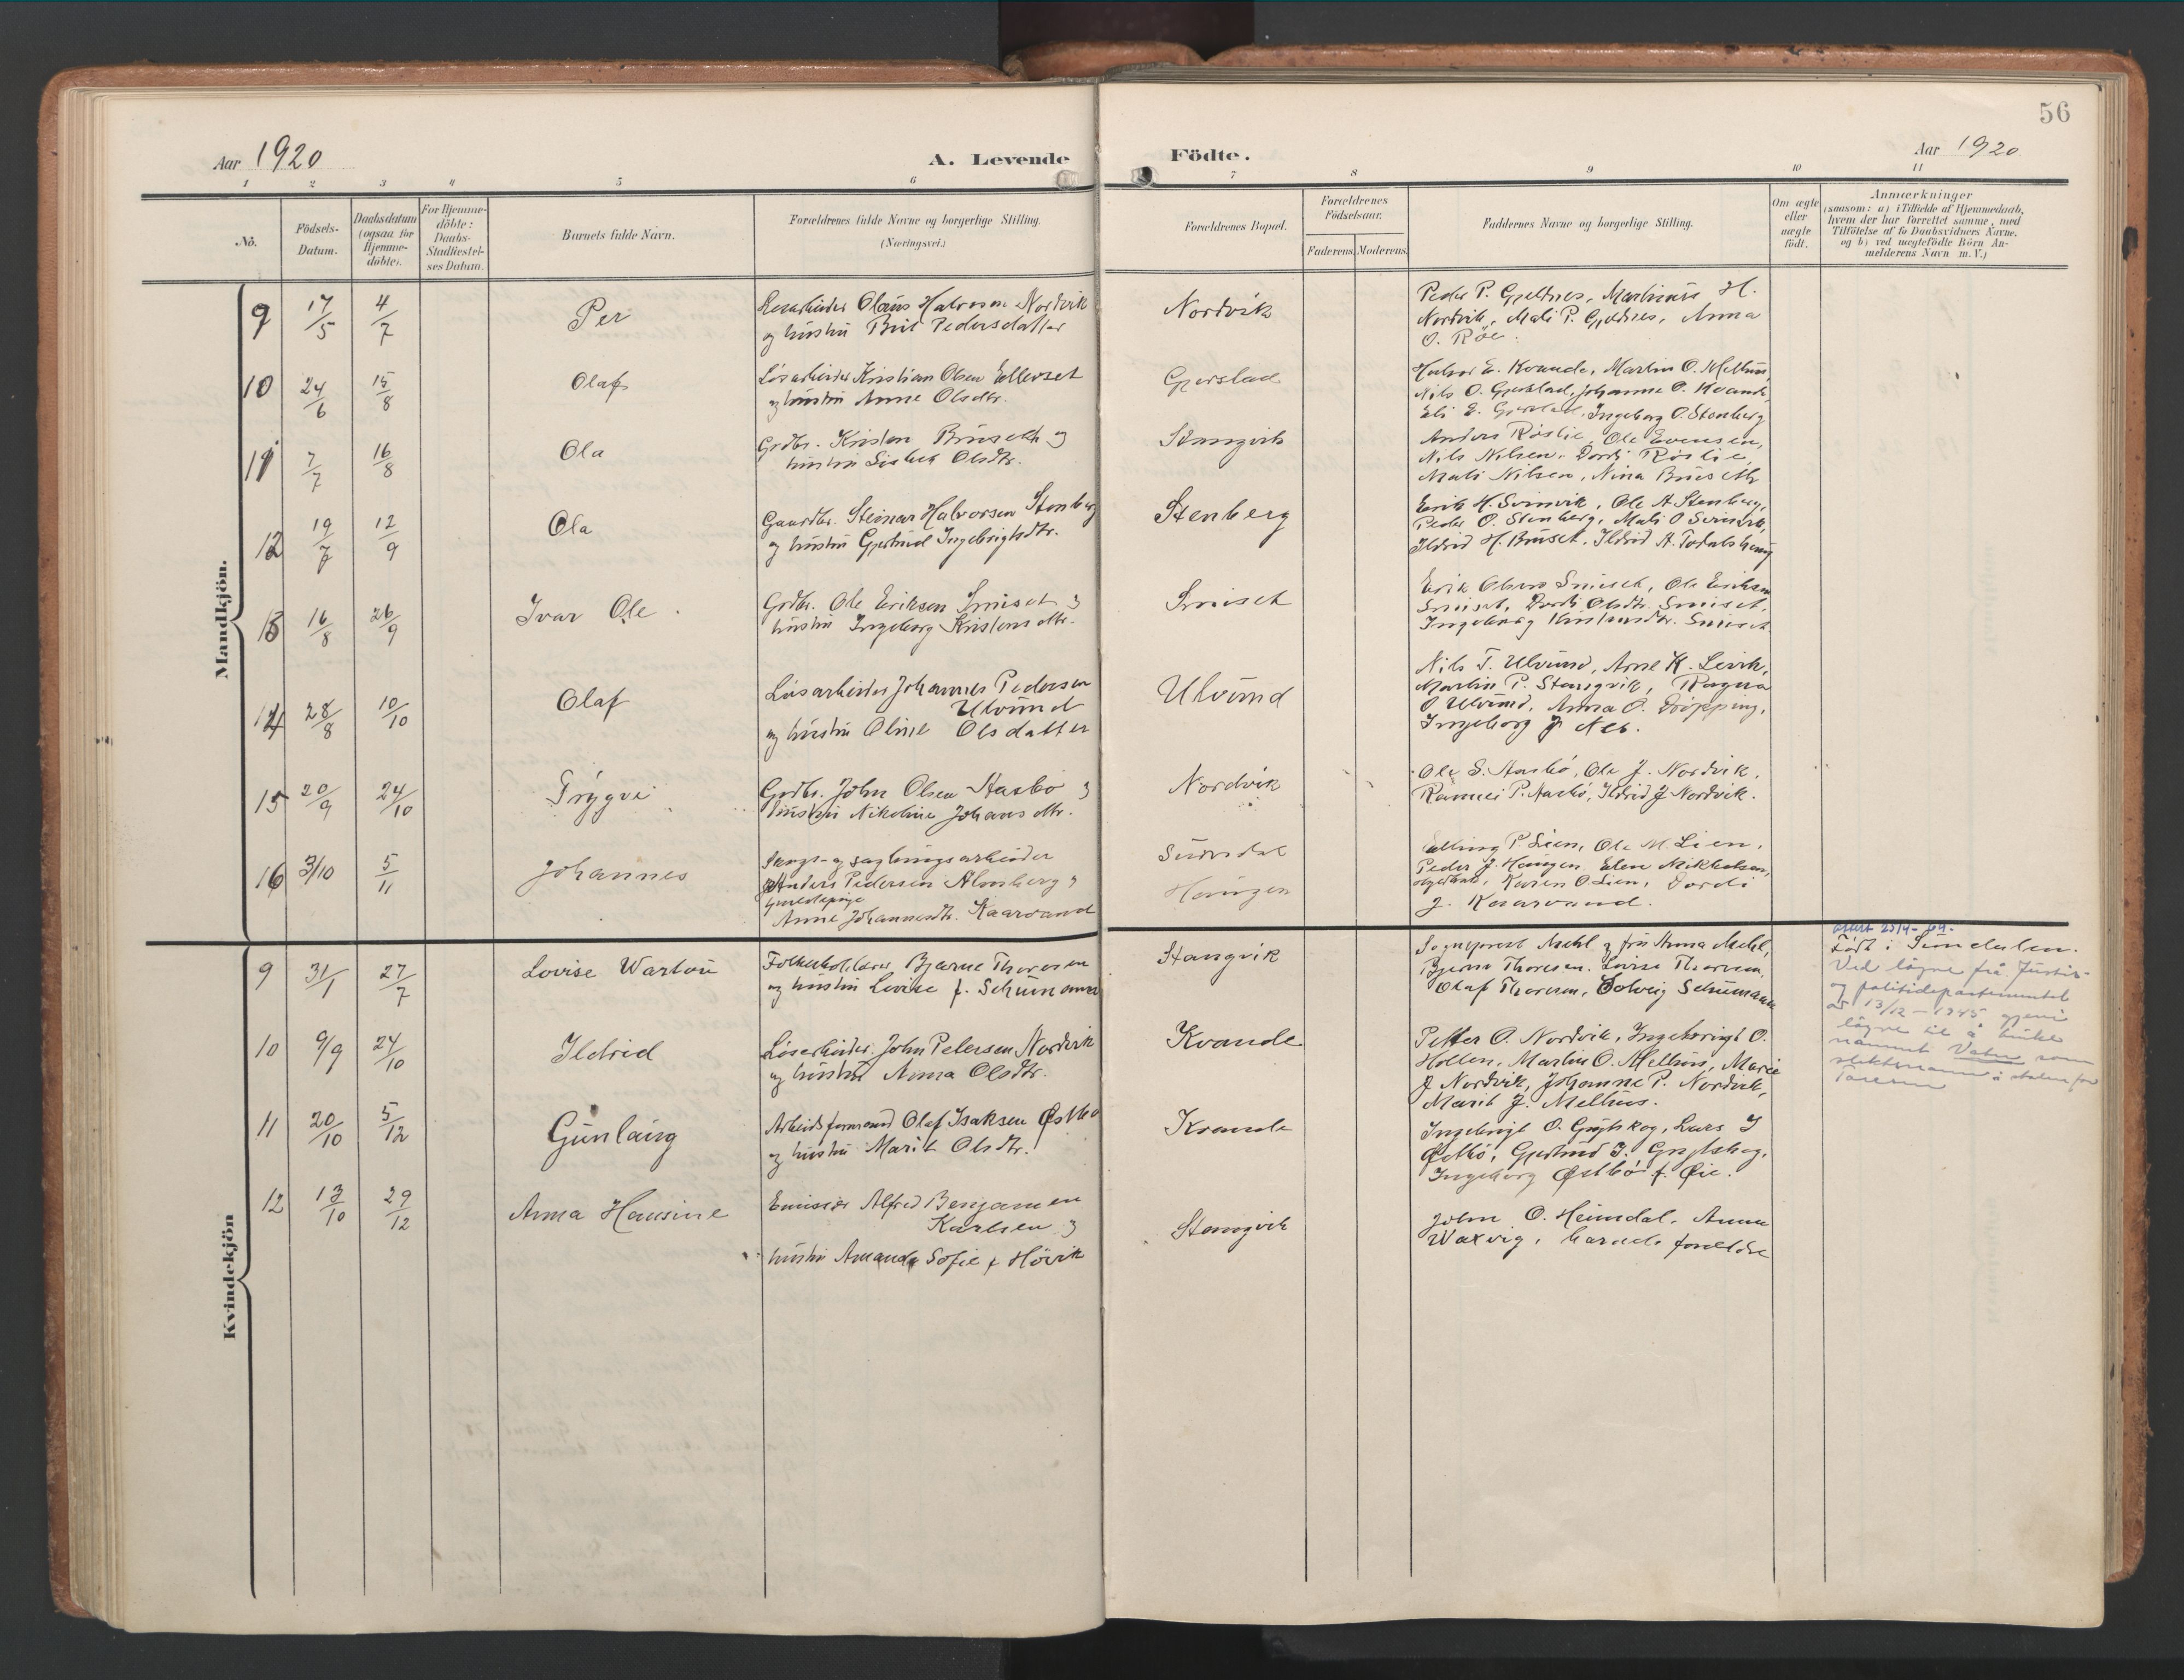 56
Aar 1920
A. Levende
Födte.
Aar 1920
1 2 3 4 5 6 7 8 9 10 11
No.
Födsels-
Datum.
Daabsdatum
(ogsaa for
Hjemme-
döbte).
For Hjemme-
döbte:
Daabs-
Stadfæstel-
ses Datum.
Barnets fulde Navn.
Forældrenes fulde Navne og borgerlige Stilling.
(Næringsvei.)
Forældrenes Bopæl.
Forældrenes
Födselsaar.
Faderens. Moderens.
Faddernes Navne og borgerlige Stilling.
Om ægte
eller
uægte
födt.
Anmærkninger
(saasom: a) i Tilfælde af Hjemmedaab,
hvem der har forrettet samme, med
Tilföielse af to Daabsvidners Navne,
og b) ved uægtefödte Börn An-
melderens Navn m. V.)
Mandkjön.
9 17/5 4/7 Per
Olaus Halvorsen Nordvik
og hustru Brit Pedersdatter
Nordvik
Peder P. Gjeldnes, Martinus H.
Nordvik, Mali P. Gjeldnes, Anna
O. Röe.
10 24/6 15/8 Olaf
Lösarbeider Kristian Olsen Ellevset
og hustru Anne Olsdtr.
Gjerstad
Halvor E. Kvande, Martin O. Melhus,
Nils O. Gjerstad, Johanna O. Kvande,
Eli E. Gjerstad, Ingeborg O. Stenberg
11 7/7 16/8 Ola
Grdbr. Kristen Bruseth og
hustru Lisbet Olsdtr.
Stangvik
Anders Röslie, Ole Evensen,
Nils Nilsen, Dordi Röslie,
Mali Nilsen, Nina Bruseth
12 19/7 12/9 Ola
Gaardbr. Steinar Halvorsen Stenberg
og hustru Gjertrud Ingebrigtsdtr.
Stenberg
Erik H. Svinvik, Ole A Stenberg,
Peder O. Stenberg, Mali O Svinvik,
Ildrid H. Bruset, Ildrid A.
13 16/8 26/9 Ivar Ole.
Grdbr. Ole Eriksen Smiset og
hustru Ingeborg Kristensdtr.
Smiset
Erik Olsen Smiset, Ole Eriksen
Smiset, Dordi Olsdtr. Smiset,
Ingeborg Kristensdtr. Smiset
14 28/8 10/10 Olaf
Lösarbeider Johannes Pedersen
Ulvund
og hustru Oline Olsdatter
Ulvund
Nils T. Ulvund, Arne K. Levik,
Martin P. Stangvik, Ragna
O Ulvund, Anna O. Dröpping,
Ingeborg J Nes.
15 20/9 24/10 Trygve
Grdbr. John Olsen Aasbö og
hustru Nikoline Johansdtr.
Nordvik
Ole S. Aasbö, Ole J. Nordvik,
P. Aasbö, Ildrid J Nordvik.
16 3/10 5/11 Johannes
og sagbrugsarbeider
Anders Pedersen Almberg og
Anne Johannesdtr. Kaarvand
Surndal
Haugen
Elling P. Lien, Ole M. Lien,
Peder J. Haugen, Elen Mikkelsen,
Karen O. Lien, Dordi
J. Kaarvand.
Kvindekjön
9 31/1 27/7 Lovise
Bjarne Thoresen
og hustru Lovise f. Schumann
Stangvik
Sogneprest Mehl og fru Anna Mehl,
Bjarne Thoresen, Lovise Thoresen,
Olaf Thoresen, Solveig Schumann
Födt i Sundalen.
Ved løyve frå Justis-
og politidepartementet
av 13/12 - 1945 gjeve
løyve til å bruke
namnet Vatn som
slektsnamn i staden for
10 9/9 24/10 Ildrid
Lösarbeider John Petersen Nordvik
og hustru Anna Olsdtr.
Kvande
Petter O. Nordvik, Ingebrigt O.
Holten, Martin O. Melhus, Marie
J Nordvik, Johanne P. Nordvik,
Marit J. Melhus.
11 20/10 5/12 Gunlaug
Arbeidsformand Olaf Isaksen Østbö
og hustru Marit Olsdtr.
Kvande
Ingebrigt O. Grytskog, Lars I
Østbö, Gjertrud I. Grytskog,
Ingeborg Østbö f. Øie.
12 13/10 29/12 Anna Hansine
Emissær Alfred Benjamen
Karlsen og
hustru Amanda Sofie f Hövik
Stangvik
John O. Heimdal, Anna
Waxvig, barnets foreldre